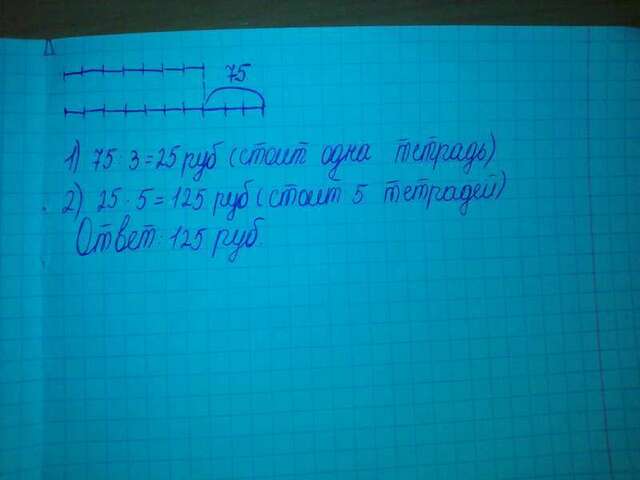 75
1) 75 : 3 = 25 руб (стоит одна тетрадь)
2) 25 · 5 = 125 руб (стоит 5 тетрадей)
Ответ: 125 руб.